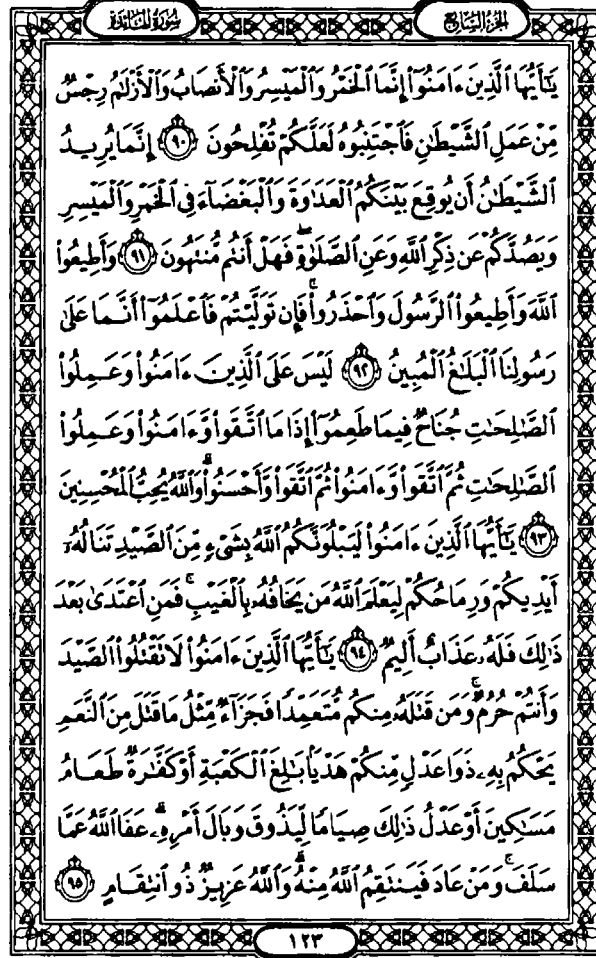 سُورَةُ المَائِدَةِ الجُزْءُ السَّابِعُ
يَٰٓأَيُّهَا ٱلَّذِينَ ءَامَنُوٓا۟ إِنَّمَا ٱلْخَمْرُ وَٱلْمَيْسِرُ وَٱلْأَنصَابُ وَٱلْأَزْلَٰمُ رِجْسٌ
مِّنْ عَمَلِ ٱلشَّيْطَٰنِ فَٱجْتَنِبُوهُ لَعَلَّكُمْ تُفْلِحُونَ ٩٠ إِنَّمَا يُرِيدُ
ٱلشَّيْطَٰنُ أَن يُوقِعَ بَيْنَكُمُ ٱلْعَدَٰوَةَ وَٱلْبَغْضَآءَ فِى ٱلْخَمْرِ وَٱلْمَيْسِرِ
وَيَصُدَّكُمْ عَن ذِكْرِ ٱللَّهِ وَعَنِ ٱلصَّلَوٰةِ ۖ فَهَلْ أَنتُم مُّنتَهُونَ ٩١ وَأَطِيعُوا۟
ٱللَّهَ وَأَطِيعُوا۟ ٱلرَّسُولَ وَٱحْذَرُوا۟ ۚ فَإِن تَوَلَّيْتُمْ فَٱعْلَمُوٓا۟ أَنَّمَا عَلَىٰ
رَسُولِنَا ٱلْبَلَٰغُ ٱلْمُبِينُ ٩٢ لَيْسَ عَلَى ٱلَّذِينَ ءَامَنُوا۟ وَعَمِلُوا۟
ٱلصَّٰلِحَٰتِ جُنَاحٌ فِيمَا طَعِمُوٓا۟ إِذَا مَا ٱتَّقَوا۟ وَّءَامَنُوا۟ وَعَمِلُوا۟
ٱلصَّٰلِحَٰتِ ثُمَّ ٱتَّقَوا۟ وَّءَامَنُوا۟ ثُمَّ ٱتَّقَوا۟ وَّأَحْسَنُوا۟ ۗ وَٱللَّهُ يُحِبُّ ٱلْمُحْسِنِينَ
٩٣ يَٰٓأَيُّهَا ٱلَّذِينَ ءَامَنُوا۟ لَيَبْلُوَنَّكُمُ ٱللَّهُ بِشَىْءٍ مِّنَ ٱلصَّيْدِ تَنَالُهُۥٓ
أَيْدِيكُمْ وَرِمَاحُكُمْ لِيَعْلَمَ ٱللَّهُ مَن يَخَافُهُۥ بِٱلْغَيْبِ ۚ فَمَنِ ٱعْتَدَىٰ بَعْدَ
ذَٰلِكَ فَلَهُۥ عَذَابٌ أَلِيمٌ ٩٤ يَٰٓأَيُّهَا ٱلَّذِينَ ءَامَنُوا۟ لَا تَقْتُلُوا۟ ٱلصَّيْدَ
وَأَنتُمْ حُرُمٌ ۚ وَمَن قَتَلَهُۥ مِنكُم مُّتَعَمِّدًا فَجَزَآءٌ مِّثْلُ مَا قَتَلَ مِنَ ٱلنَّعَمِ
يَحْكُمُ بِهِۦ ذَوَا عَدْلٍ مِّنكُمْ هَدْيًۢا بَٰلِغَ ٱلْكَعْبَةِ أَوْ كَفَّٰرَةٌ طَعَامُ
مَسَٰكِينَ أَوْ عَدْلُ ذَٰلِكَ صِيَامًا لِّيَذُوقَ وَبَالَ أَمْرِهِۦ ۗ عَفَا ٱللَّهُ عَمَّا
سَلَفَ ۚ وَمَنْ عَادَ فَيَنتَقِمُ ٱللَّهُ مِنْهُ ۗ وَٱللَّهُ عَزِيزٌ ذُو ٱنتِقَامٍ ٩٥
١٢٣